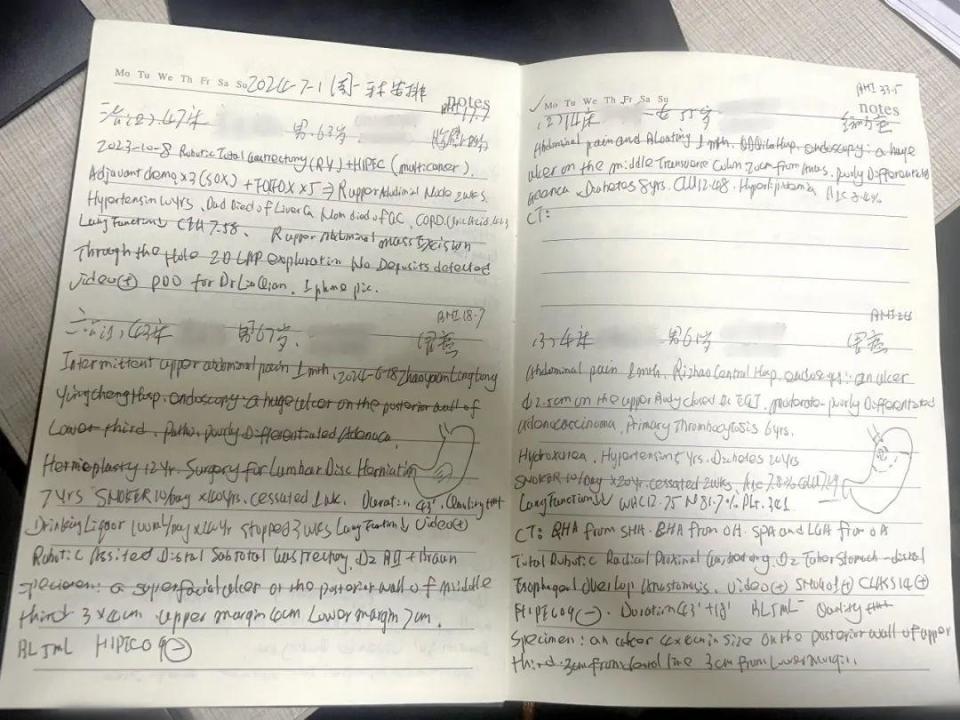 Mo Tu We Th Fr Sa Su 2024-7-1 周一
notes
BMI 17.7
47床 男 63岁
2023-10-8 Robotic Total Gastrectomy (RY) + HIPEC (multicancer).
Adjuvant chemo x3 (SOX) + FOLFOX x5 ⇒ R upper Abdominal Node 2wks.
Hypertension 10yrs, Dad died of Liver Ca Mom died of GC, COPD. Uric Acid
Lung Function↓ CEA 7.58. R upper Abdominal mass Excision
Through the Hole 2D LAP exploration No Deposits detected
Video(+) PDO for Dr Lin Qian. Iphone pic.
BMI 18.7
43床 男 67岁
胃癌
Intermittent upper abdominal pain 1 mth, 2024-6-18 Zhaoyuan Linglong
Yingcheng Hosp. endoscopy: a huge ulcer on the posterior wall of
Lower third. Patho: poorly Differentiated Adenoca.
Hernioplasty 12yr. Surgery for Lumbar Disc Herniation
7yrs SMOKER 10/day x40yrs. cessated 1wk. Duration 43' Quality
Drinking Liquor 100ml/day x40yr stopped 3wks Lung Function↓ Video(+)
Robotic Assisted Distal Subtotal Gastrectomy. D2 BII + Braun
Specimen: a superficial ulcer on the posterior wall of middle
third 3x4cm upper margin 4cm Lower margin 7cm.
BL 5ml HIPEC09(-)
BMI 33.5
✓ Mo Tu We Th Fr Sa Su
notes
14床 女 55岁
Abdominal pain and Bloating 1 mth. Hosp. endoscopy: a huge
ulcer on the middle Transverse Colon cm from Anus. poorly Differentiated
Diabetes 8yrs. GLU 12.48. Hyperlipidemia A1c 8.4%
CT:
4床 男 61岁
胃癌
Abdominal pain 2 mth. Rizhao Central Hosp. endoscopy: an ulcer
Φ2.5cm on the upper Body closed to EGJ. moderate-poorly Differentiated
adenocarcinoma. Primary Thrombocytosis 6yrs.
Hydroxurea. Hypertension yrs. Diabetes 20yrs
SMOKER 10/day x20yr. cessated 2wks. A1c 7.8% GLU
Lung Function↓ WBC 12.75 N 81.7% PLT. 341
CT: RHA from SMA. LHA from SPA and LGA from
Total Robotic Radical Proximal Gastrectomy. D2 Tube Stomach-distal
Esophageal Overlap Anastomosis. Video(+) (+) (+)
HIPEC09(-). Duration 43'+18' BL 5ml Quality
Specimen: an ulcer 4x4cm in size on the posterior wall of upper
third. 2cm from dental line 3cm from Lower margin.